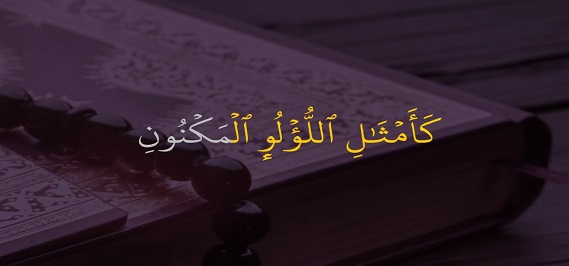 كَأَمۡثَٰلِ ٱللُّؤۡلُوِٕ ٱلۡمَكۡنُونِ